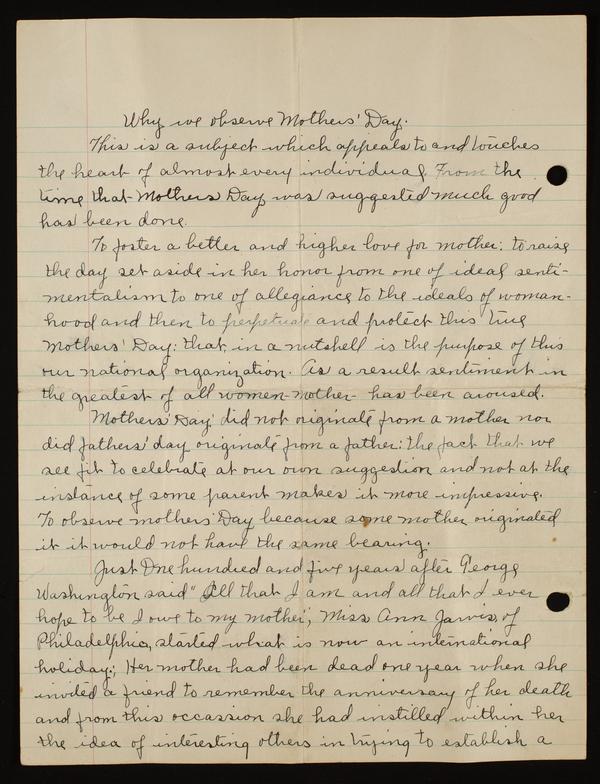 Why we observe Mothers' Day.
This is a subject which appeals to and touches
the heart of almost every individual. From the
time that Mothers Day was suggested much good
has been done.
To foster a better and higher love for mother: to raise
the day set aside in her honor from one of ideal senti-
mentalism to one of allegiance to the ideals of woman-
hood and then to perpetuate and protect this true
Mothers' Day: that in a nutshell is the purpose of this
our national organization. As a result sentiment in
the greatest of all women-mother- has been aroused.
Mothers' Day did not originate from a mother nor
did fathers' day originate from a father: the fact that we
see fit to celebrate at our own suggestion and not at the
instance of some parent makes it more impressive.
To observe mothers' Day because some mother originated
it it would not have the same bearing.
Just One hundred and five years after George
Washington said "All that I am and all that I ever
hope to be I owe to my mother", Miss Ann Jarvis, of
Philadelphia, started what is now an international
holiday; Her mother had been dead one year when she
invited a friend to remember the anniversary of her death
and from this occassion she had instilled within her
the idea of interesting others in trying to establish a